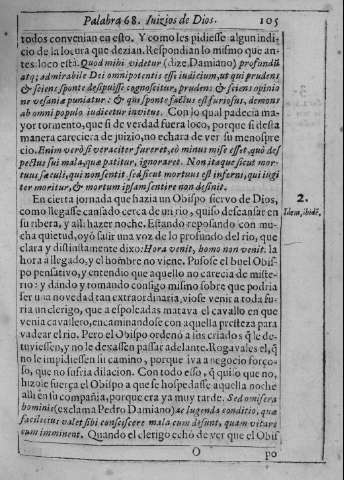 Palabra 68. Iuizios de Dios. 105
todos convenian en esto. Y como les pidiesse algun indi-
cio de la locura que dezian. Respondian lo mismo que an-
tes: loco està. Quod mihi videtur (dize Damiano) profundũ
atq; admirabile Dei omnipotentis esse iudicium, ut qui prudens
& sciens sponte despuisse cognoscitur, prudens & sciens opinio
ne vesaniæ puniatur: & qui sponte factus est furiosus, demens
ab omni populo iudicetur invitus. Con lo qual padecia ma-
yor tormento, que si de verdad fuera loco, porque si desta
manera careciera de juizio, no echara de ver su menospre
cio. Enim verò si veraciter fureret, eò minus mise esset, quò des
pectus sui mala, quæ patitur, ignoraret. Non itaque sicut mor-
tuus sæculi, qui non sentit sed sicut mortuus est inferni, qui iugi
ter moritur, & mortum ipsam sentire non desinit.
En cierta jornada que hazia un Obispo siervo de Dios,
como llegasse cansado cerca de un rio, quiso descansar en
su ribera, y alli hazer noche. Estando reposando con mu-
cha quietud, oyò salir una voz de lo profundo del rio, que
clara y distintamente dixo: Hora venit, homo non venit. la
hora a llegado, y el hombre no viene. Pusose el buel Obis-
po pensativo, y entendio que aquello no carecia de miste-
rio: y dando y tomando consigo mismo sobre que podria
ser una novedad tan extraordinaria, viose venir a toda fu-
ria un clerigo, que a espoleadas matava el cavallo en que
venia cavallero, encaminandose con aquella presteza para
vadear el rio. Pero el Obispo ordenò a sus criados q̃ le de-
tuviessen, y no le dexassen passar adelante. Rogavales el, q̃
no le impidiessen su camino, porque iva a negocio forço-
so, que no sufria dilacion. Con todo esso, q̃ quiso que no,
hizole fuerça el Obispo a que se hospedasse aquella noche
alli en su compañia, porque era ya muy tarde. Sed o misera
hominis (exclama Pedro Damiano) ac lugenda conditio, quæ
facilectus valet sibi consciscere mala cum desunt, quam vitare
cum imminent. Quando el clerigo echò de ver que el Obis
2.
Idem, ibidẽ,
O
po